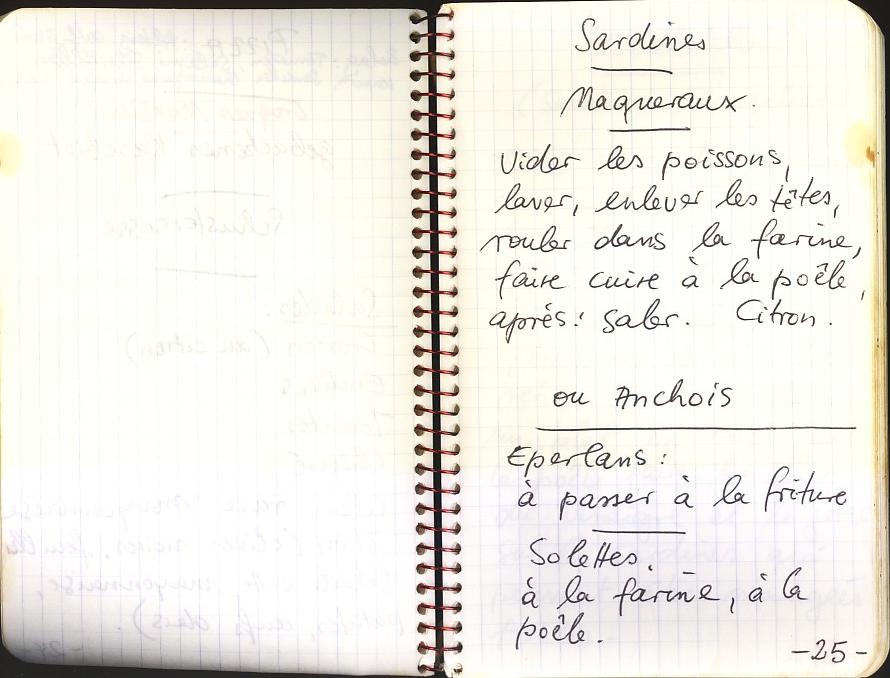 Sardines
Maqueraux.
Vider les poissons,
laver, enlever les têtes,
rouler dans la farine,
faire cuire à la poêle,
après: saler. Citron.
ou Anchois
Eperlans:
à passer à la friture
Solettes.
à la farine, à la
poêle.
-25-